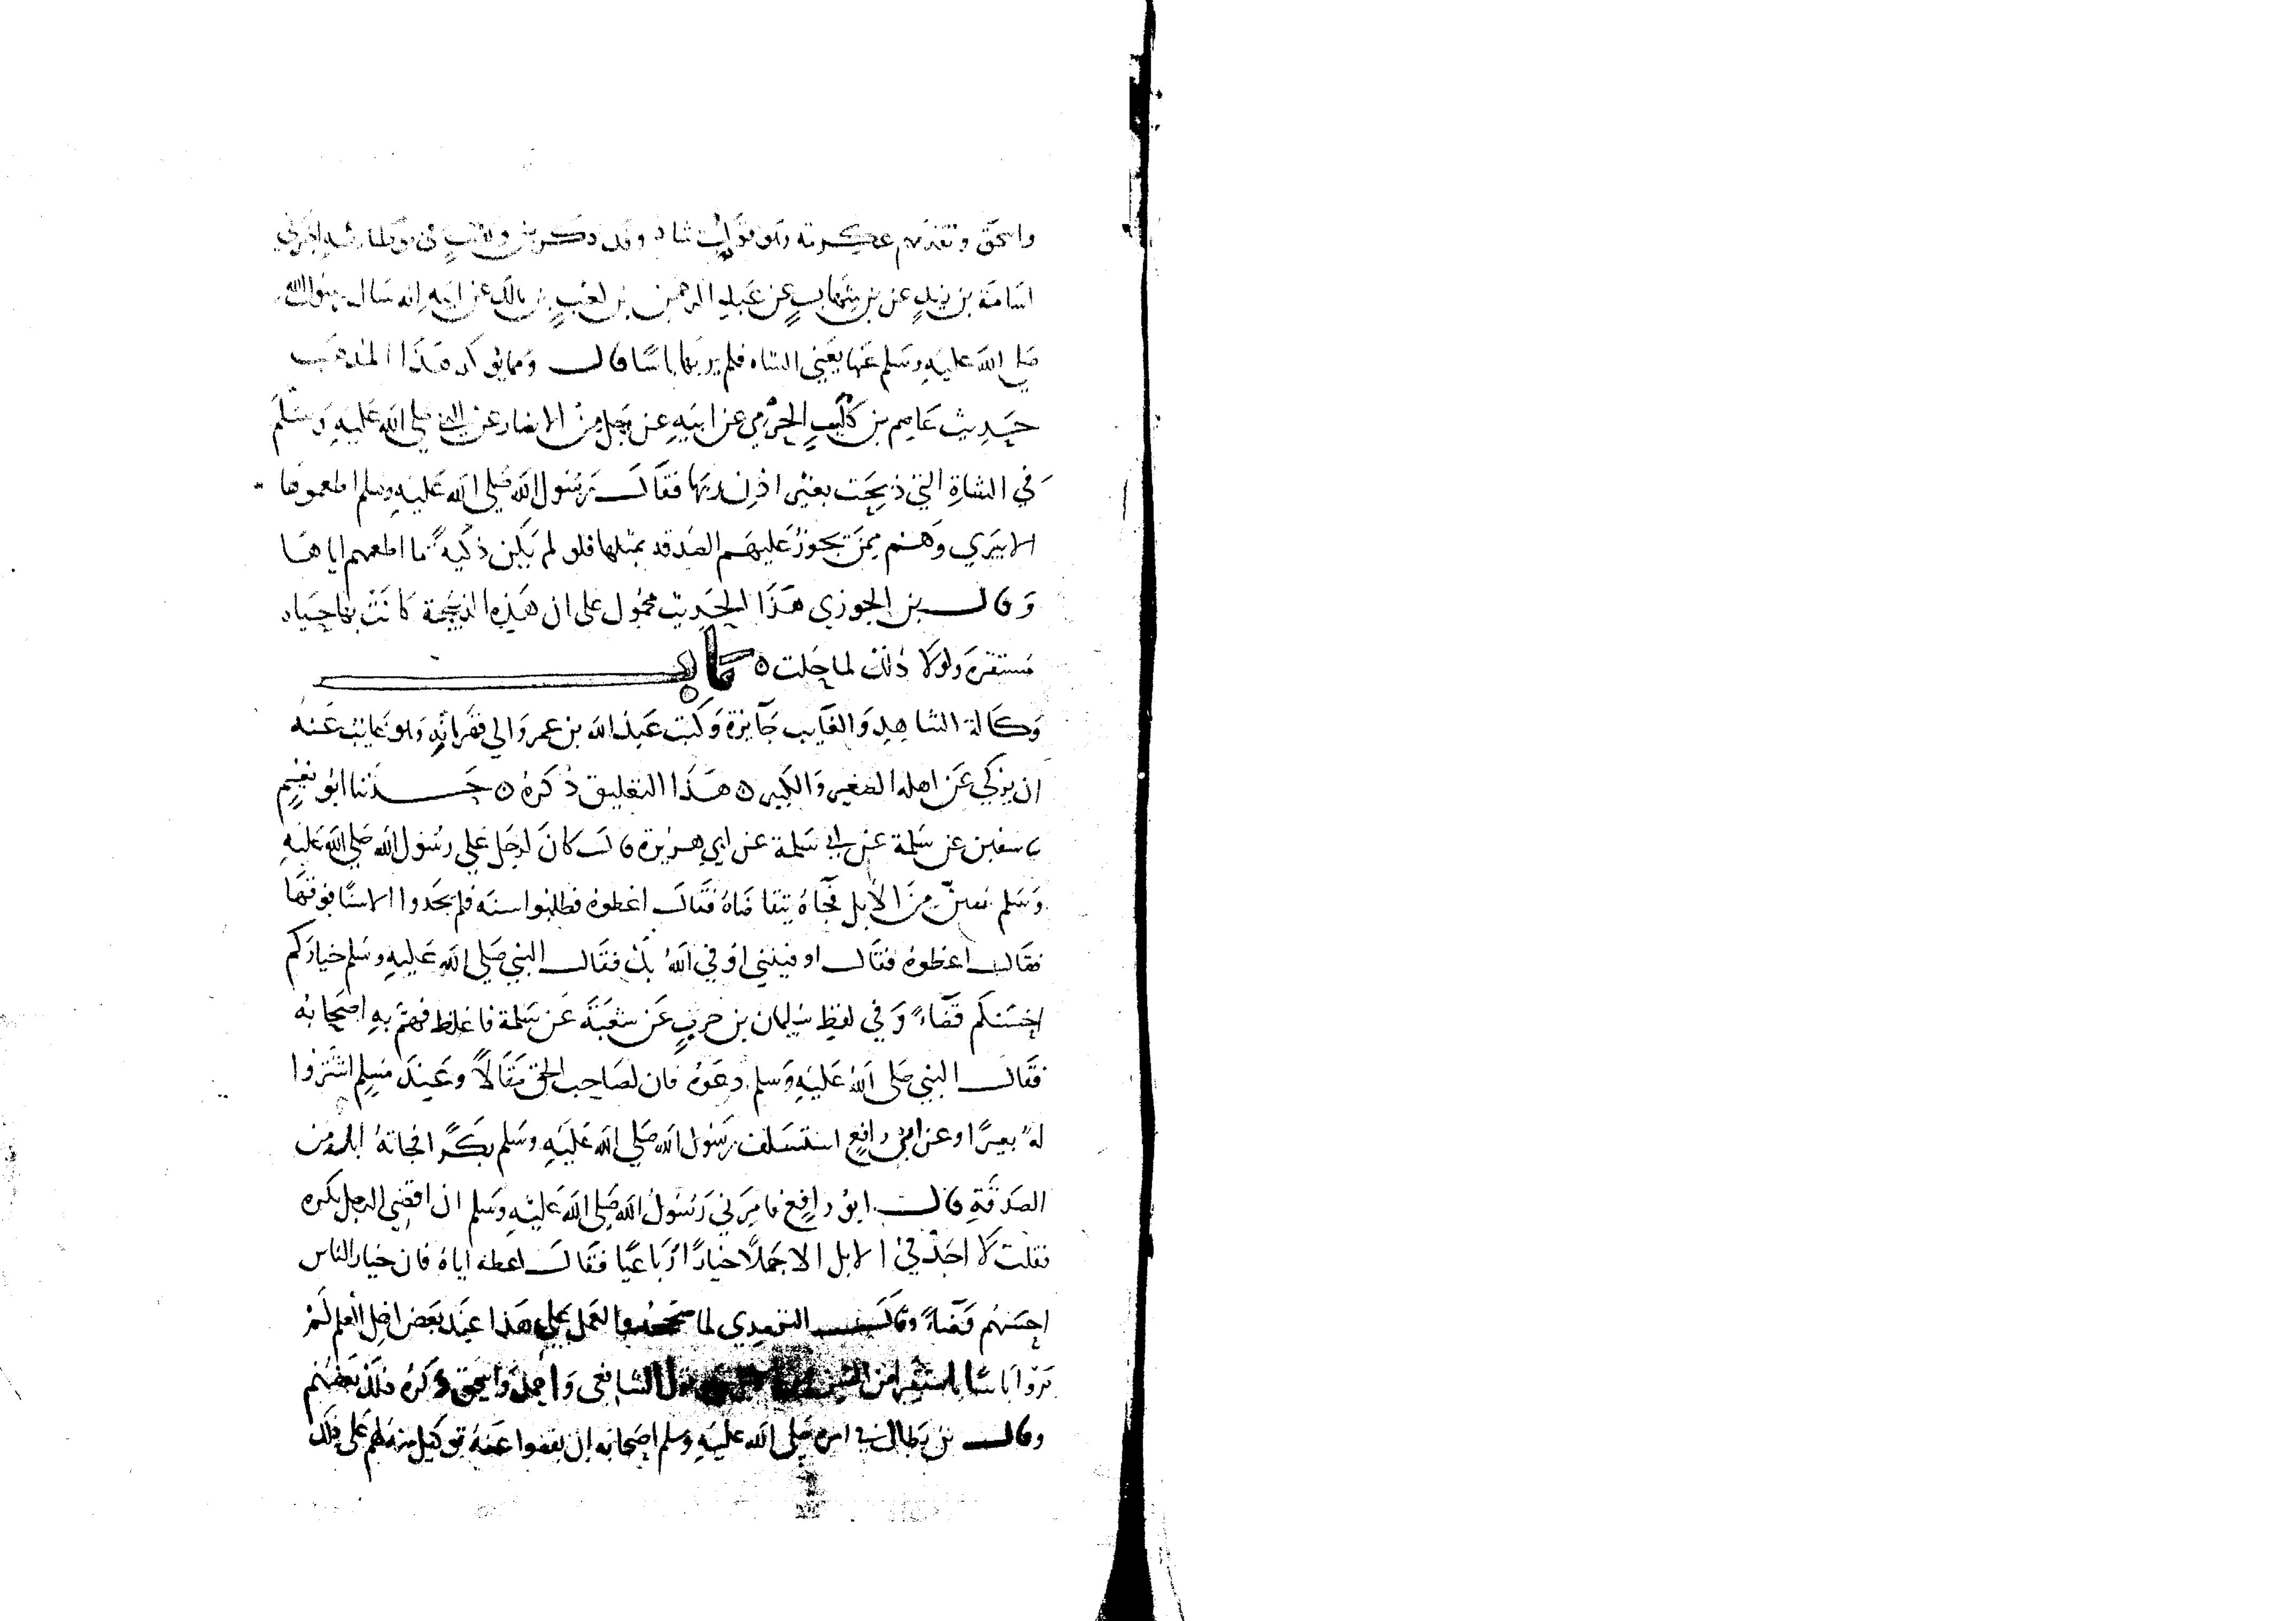 واسحق وتقدمهم عكرمة وهو قول شاذ وقد ذكر بن وهب في موطئه اخبرني
اسامة بن زيد عن بن شهاب عن عبد الرحمن بن كعب بن مالك عن ابيه انه سال رسول الله
صلى الله عليه وسلم عنها يعني الشاه فلم ير بها باسا قال ومما يؤكد هذا المذهب
حديث عاصم بن كليب الجرمي عن ابيه عن رجل من الانصار عن النبي صلى الله عليه وسلم
في الشاة التي ذبحت بغير اذن ربها فقال رسول الله صلى الله عليه وسلم اطعموها
الاسري وهم ممن تجوز عليهم الصدقة بمثلها فلو لم يكن ذكية ما اطعمهم اياها
وقال بن الجوزي هذا الحديث محمول على ان هذه الذبيحة كانت بها حياه
مستقرة ولولا ذلك لما حلت ه باب
وكالة الشاهد والغايب جايزة وكتب عبد الله بن عمرو الي قهرمانه وهو غايب عنه
ان يزكي عن اهله الصغير والكبير ه هذا التعليق ذكره ه حدثنا ابو نعيم
ثا سفين عن سلمة عن ابي سلمة عن ابي هريرة قال كان لرجل على رسول الله صلى الله عليه
وسلم سن من الابل فجاه يتقاضاه فقال اعطوه فطلبوا سنه فلم يجدوا الا سنا فوقها
فقال اعطوه فقال اوفيتني اوفي الله بك فقال النبي صلى الله عليه وسلم خياركم
احسنكم قضاء وفي لفظ سليمان بن حرب عن شعبة عن سلمة فاغلظ فهم به اصحابه
فقال النبي صلى الله عليه وسلم دعوه فان لصاحب الحق مقالا وعند مسلم اشتروا
له بعيرا وعن ابي رافع استسلف رسول الله صلى الله عليه وسلم بكرا فجاته ابل من
الصدقة قال ابو رافع فامرني رسول الله صلى الله عليه وسلم ان اقضي الرجل بكره
فقلت لا اجد في الابل الا جملا خيارا رباعيا فقال اعطه اياه فان خيار الناس
احسنهم قضاء وقال الترمذي لما صححه والعمل على هذا عند بعض اهل العلم لم
يروا باسا باستقراض السن من قول الشافعي واحمد واسحق وكره ذلك بعضهم
وقال بن بطال في امره صلى الله عليه وسلم اصحابه ان يقضوا عنه توكيل منه لهم على ذلك